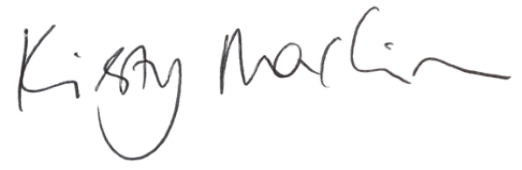 Kirsty Martin